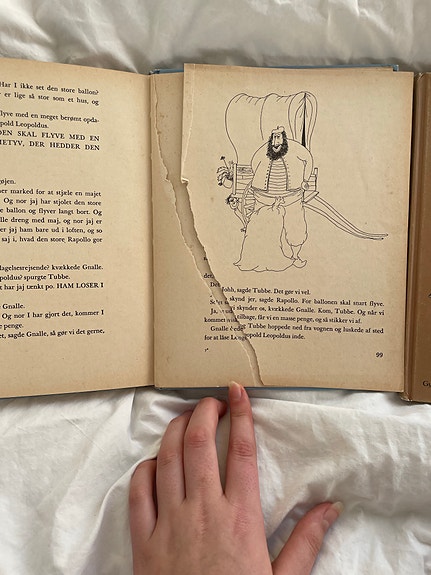 Har I ikke set den store ballon?
er lige så stor som et hus, og
flyve med en meget berømt opda-
pold Leopoldus.
DEN SKAL FLYVE MED EN
METYV, DER HEDDER DEN
øjen.
er marked for at stjæle en majet
Og nor jaj har stjolet den store
e ballon og flyver langt bort. Og
lle dreng med maj, og nor jaj er
er jaj ham bare ud i loften, og so
saj i, hvad den store Rapollo gor
dagelsesrejsende? kvækkede Gnalle.
oldus? spurgte Tubbe.
t har jaj tænkt po. HAM LOSER I
Gnalle.
Og nor I har gjort det, kommer I
e penge.
et, sagde Gnalle, så gør vi det gerne,
det.
ohh, sagde Tubbe. Det gør vi vel.
skynd jer, sagde Rapollo. For ballonen skal snart flyve.
Ja, vi skynder os, kvækkede Gnalle. Kom, Tubbe. Og når vi
kommer tilbage, får vi en masse penge, og så stikker vi af.
Gnalle Tubbe hoppede ned fra vognen og luskede af sted
for at låse Leopoldus inde.
7*
99